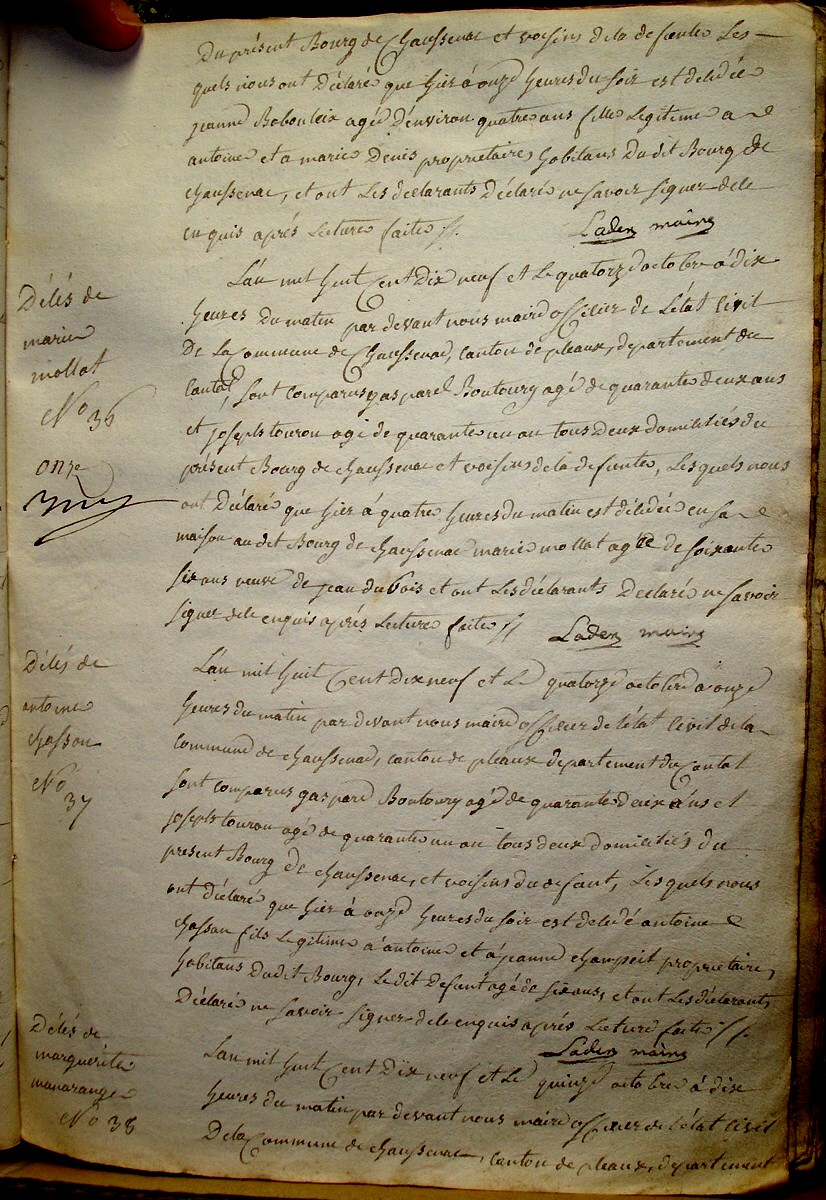 Du présent Bourg de Chaussenac et voisins de la defunte Les
quels nous ont Déclaré que hier à onze heures du soir est dèlédée
jeanne Rabouleix agée D'environ quatre ans fille Legitime a
antoine et a marie Denis proprietaires habitans Du dit Bourg de
chaussenac, et ont Les declarants Déclaré ne savoir signer de ce
enquis aprés Lecture faite //.
Laden maire
L'an mil huit Cent Dix neuf et le quatorze octobre à dix
heures Du matin par devant nous maire officier de L'état Civil
De La Commune de Chaussenac, canton de pleaux, departement du
Cantal, sont comparus gaspard Boutoury agé de quarante deux ans
et joseph touron agé de quarante un an tous Deux domiciliés du
présent Bourg de chaussenac et voisins de la defunte, Les quels nous
ont Déclaré que hier à quatre heures du matin est délédée en sa
maison au dit Bourg de chaussenac marie mollat agée de soixante
six ans veuve de jean dubois et ont Les déclarants Déclaré ne savoir
signer de ce enquis aprés Lecture faite //
Laden maire
Délés de
marie
mollat
No 36
onze
L'an mil huit Cent Dix neuf et Le quatorze octobre à onze
heures du matin par devant nous maire officier de L'état Civil de la
commune de chaussenac, canton de pleaux departement du Cantal
sont comparus gaspard Boutoury agé de quarante deux ans et
joseph touron agé de quarante un an tous deux domiciliés du
present Bourg de chaussenac, et voisins du defunt, Les quels nous
ont déclaré que hier à onze heures du soir est deledé antoine
chasson fils Legitime a antoine et à jeanne champeit proprietaire,
habitans Du dit Bourg, Le dit Defunt agé de six ans, et ont Les déclarants
Déclaré ne savoir signer de ce enquis aprés Lecture faite //.
Laden maire
Délés de
antoine
chasson
No 37
L'an mil huit Cent Dix neuf et Le quinze octobre à dix
heures du matin par devant nous maire officier de L'état Civil
De La Commune de chaussenac, canton de pleaux, departement
Délés de
marguerite
manarange
No 38